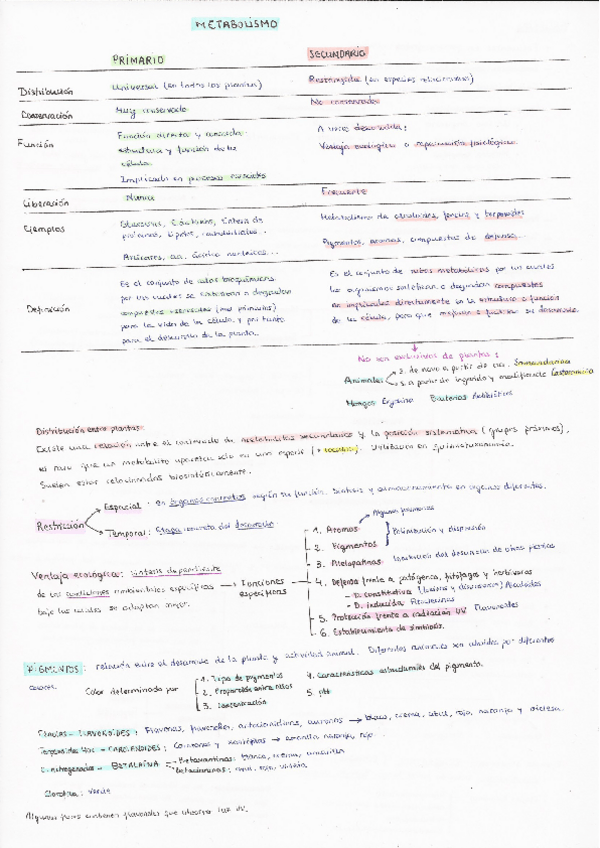 METABOLISMO
PRIMARIO SECUNDARIO
Distribución Universal (en todas las plantas) Restringida (en especies relacionadas)
Conservación Muy conservado No conservado
Función Función directa y conocida: A veces desconocida:
estructura y función de la Ventaja ecológica o fisiológica
célula.
Implicado en procesos esenciales
Liberación Nunca Frecuente
Ejemplos Glucólisis, Síntesis de Metabolismo de alcaloides, fenoles y terpenoides
proteínas, lípidos,
Azúcares, aa, ácidos nucleicos... Pigmentos, aromas, compuestos de defensa...
Definición Es el conjunto de rutas bioquímicas Es el conjunto de rutas metabólicas por las cuales
por las cuales se sintetizan o degradan los organismos sintetizan o degradan compuestos
compuestos esenciales para no implicados directamente en la estructura o función
para la vida de la célula y por tanto de la célula, pero que mejoran o facilitan su desarrollo.
para el desarrollo de la planta.
No son exclusivos de plantas:
Animales 2. de novo a partir de
3. a partir de ingerido y modificado
Hongos Bacterias Antibióticos
Distribución entre plantas:
Existe una relación entre el contenido de metabolitos secundarios y la posición sistemática (grupos próximos),
es raro que un metabolito aparezca solo en una especie Utilización en quimiotaxonomía.
Suelen estar relacionados biosintéticamente.
Restricción Espacial: en órganos concretos según su función. Síntesis y almacenamiento en órganos diferentes.
Temporal: Etapa concreta del desarrollo
Ventaja ecológica: síntesis dependiente
de las condiciones ambientales específicas → Funciones específicas
bajo las cuales se adaptan mejor.
1. Aromas Algunas feromonas
2. Pigmentos Polinización y dispersión
3. Alelopatinas: Inhibición del desarrollo de otras plantas
4. Defensa frente a patógenos, fitófagos y herbívoros
- D. constitutiva Alcaloides
- D. inducida Fitoalexinas
5. Protección frente a radiación UV Flavonoides
6. Establecimiento de simbiosis.
PIGMENTOS: relación entre el desarrollo de la planta y actividad animal. Diferentes animales son atraídos por diferentes
colores. Color determinado por 1. Tipo de pigmentos 4. Características estructurales del pigmento.
2. Proporción entre ellos 5. pH
3. Concentración
Fenoles - FLAVONOIDES: Flavonas, flavonoles, antocianidinas, auronas → blanco, crema, azul, rojo, naranja y violeta.
Terpenoides - CAROTENOIDES: Carotenos y xantofilas → amarillo, naranja, rojo
C. nitrogenados - BETALAÍNA Betaxantinas: blanco, crema, amarillo
Betacianinas: rosa, rojo, violeta.
Clorofila: verde
Algunas flores contienen flavonoles que absorben luz UV.